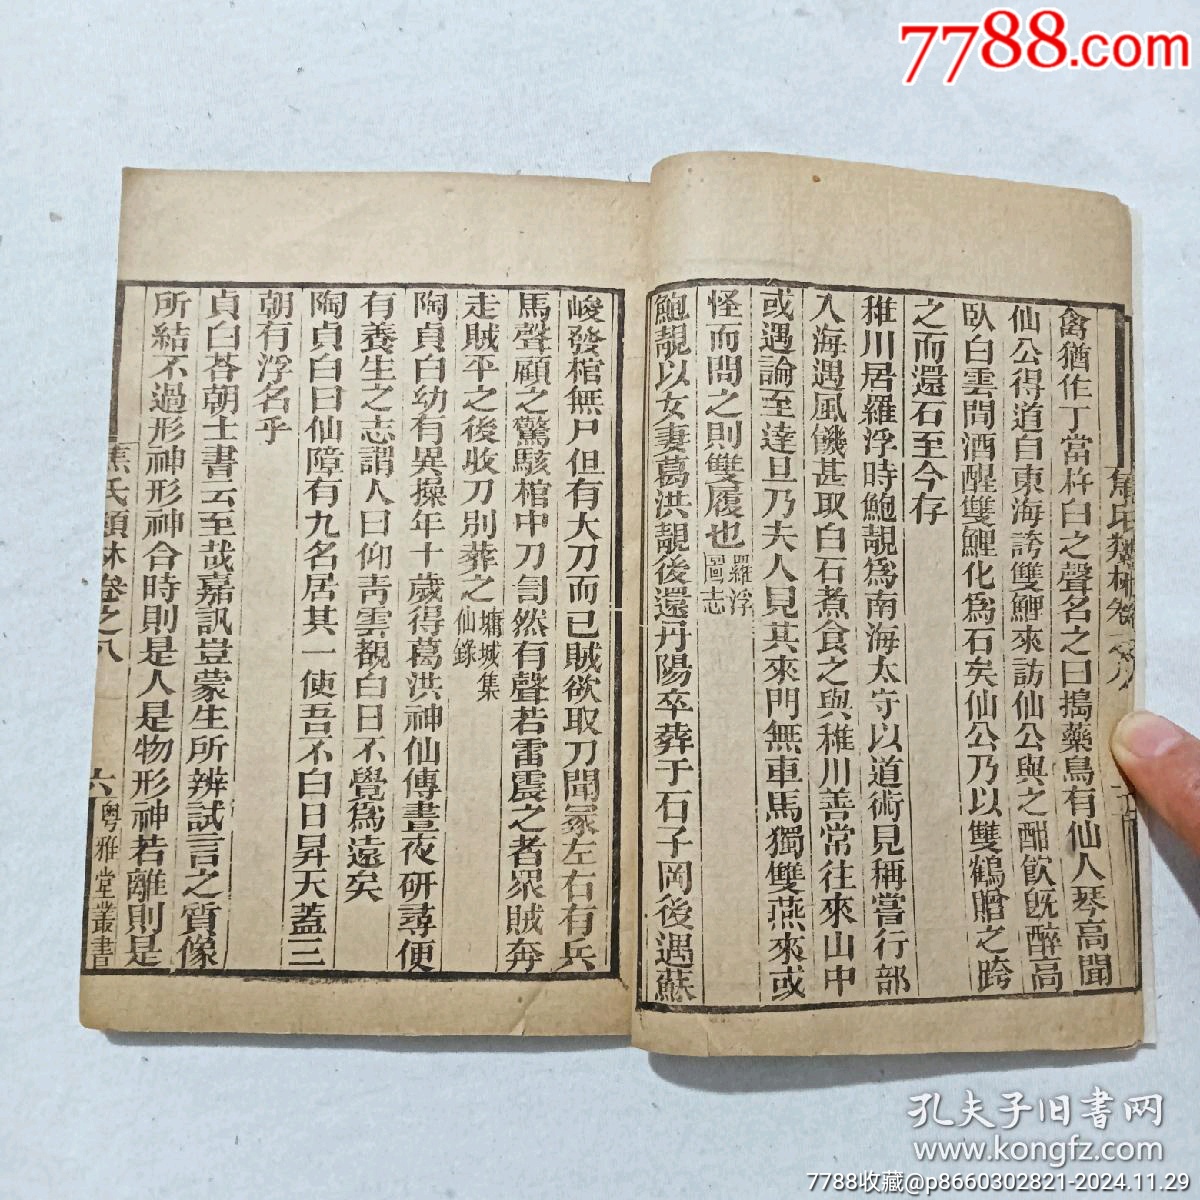 7788.com
禽猶作丁當杵臼之聲名之曰搗藥鳥有仙人琴高聞
仙公得道自東海誇雙鯉來訪仙公與之酣飲旣醉高
臥白雲間酒醒雙鯉化爲石矣仙公乃以雙鶴贈之跨
之而還石至今存
稚川居羅浮時鮑靚爲南海太守以道術見稱嘗行部
入海遇風饑甚取白石煮食之與稚川善常往來山中
或遇論至達旦乃夫人見其來門無車馬獨雙燕來或
怪而問之則雙履也羅浮圖志
鮑靚以女妻葛洪靚後還丹陽卒葬于石子岡後遇蘇
峻發棺無尸但有大刀而已賊欲取刀聞冢左右有兵
馬聲顧之驚駭棺中刀訇然有聲若雷震之者眾賊奔
走賊平之後收刀別葬之墉城集仙錄
陶貞白幼有異操年十歲得葛洪神仙傳晝夜研尋便
有養生之志謂人曰仰靑雲覩白日不覺爲遠矣
陶貞白曰仙障有九名居其一使吾不白日昇天蓋三
朝有浮名乎
貞白荅朝士書云至哉嘉訊豈蒙生所辨試言之質像
所結不過形神形神合時則是人是物形神若離則是
焦氏類林卷之八
六
粵雅堂叢書
孔夫子旧书网
www.kongfz.com
7788收藏@p8660302821-2024.11.29